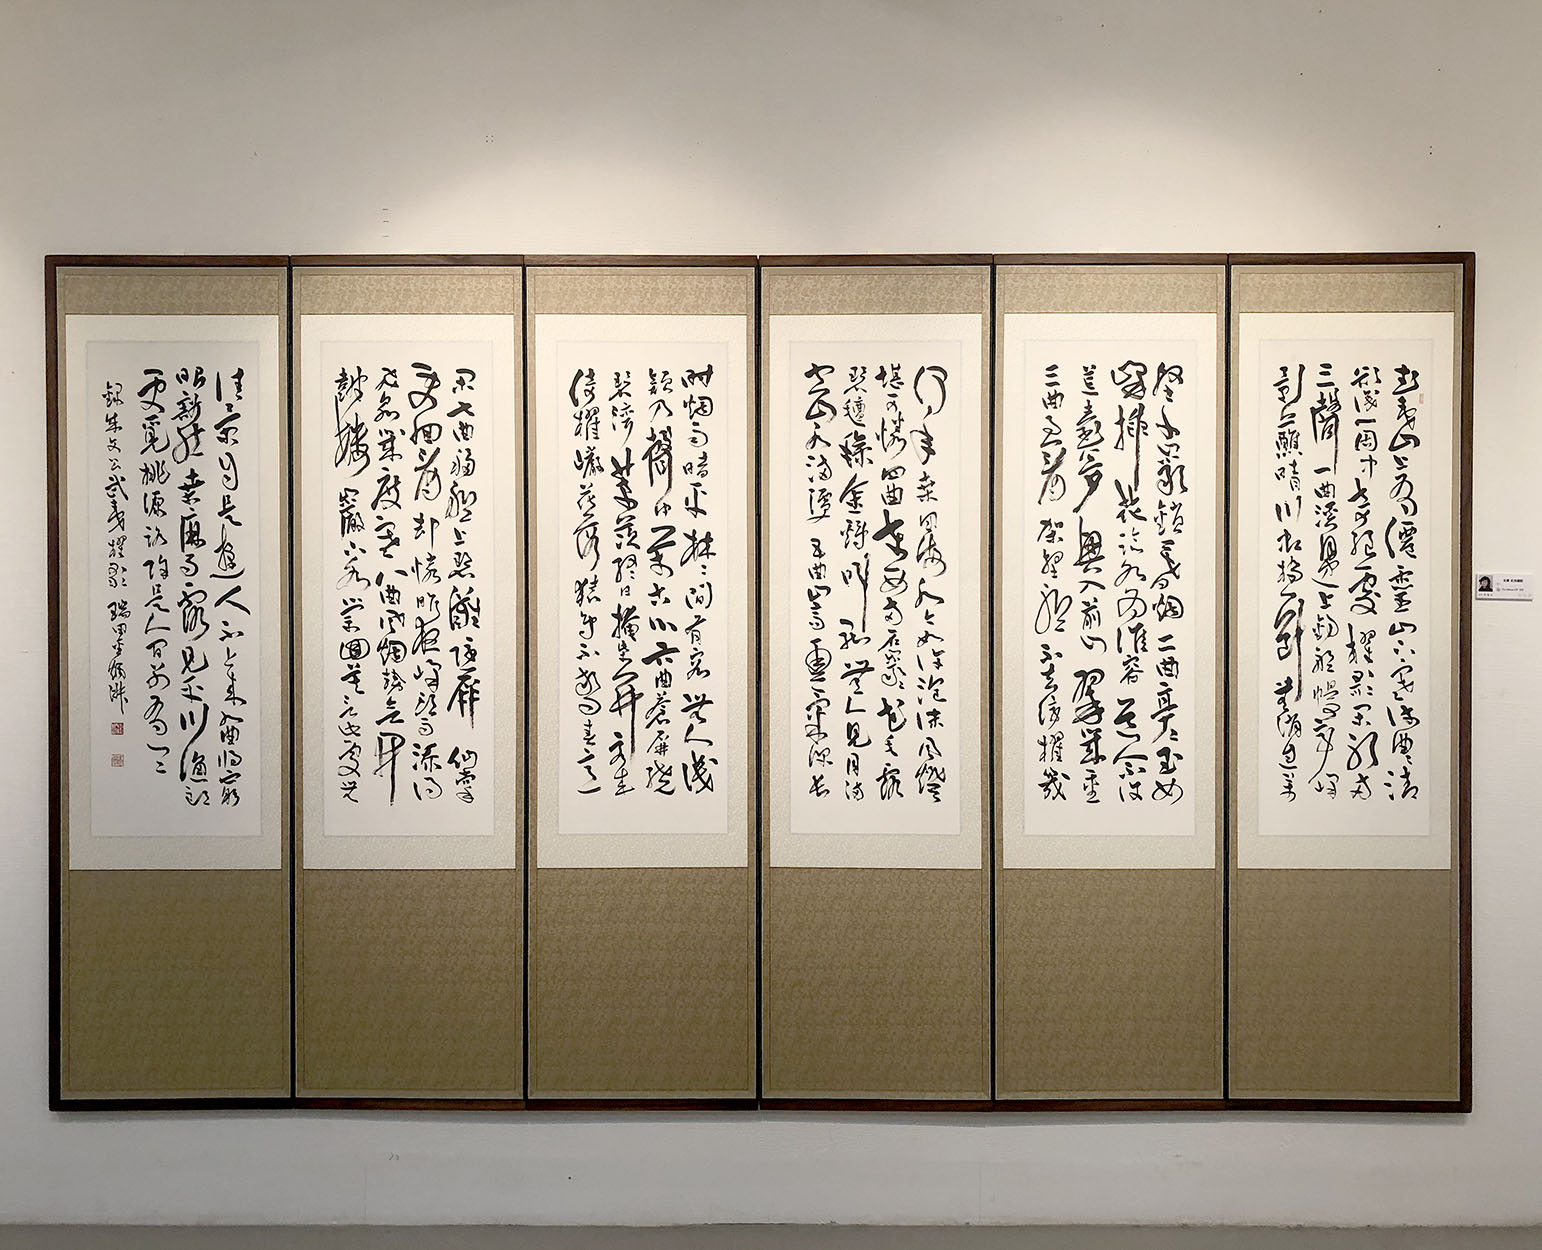 武夷山上有僊靈山下寒流曲〻清
欲識箇中奇絶處櫂歌閑聽兩
三聲一曲溪邊上釣船幔亭峰
影蘸晴川虹橋一斷無消息萬
壑千巖鎖翠烟二曲亭〻玉女
峰插花臨水為誰容道人不復
陽臺夢興入前山翠幾重
三曲君看架壑船不知停櫂幾
何年桑田海水今如許泡沫風燈
憐四曲東西兩石巖〻花垂露
碧㲯毿金雞叫罷無人見月滿
空山水滿潭五曲山高雲氣深長
時烟雨暗平林〻間有客無人識
欸乃聲中萬古心六曲蒼屏遶
碧灣茅茨終日掩柴關客來
倚櫂巖花落猿鳥不驚春意
閑七曲移船上碧灘隱屏仙掌
更回看却憐昨夜峰頭雨添得
飛泉幾度寒八曲風烟勢欲開
鼓樓巖下水縈洄莫言此處無
佳景自是遊人不上來九曲將窮
眼豁然桑麻雨露見平川漁郎
更覓桃源路除是人間別有天
錄朱文公武夷櫂歌 瑞田